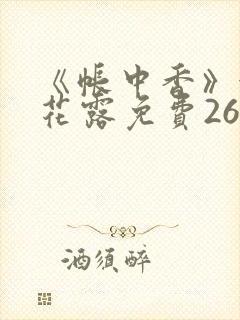 《帐中香》
花露免費26
酒須醉